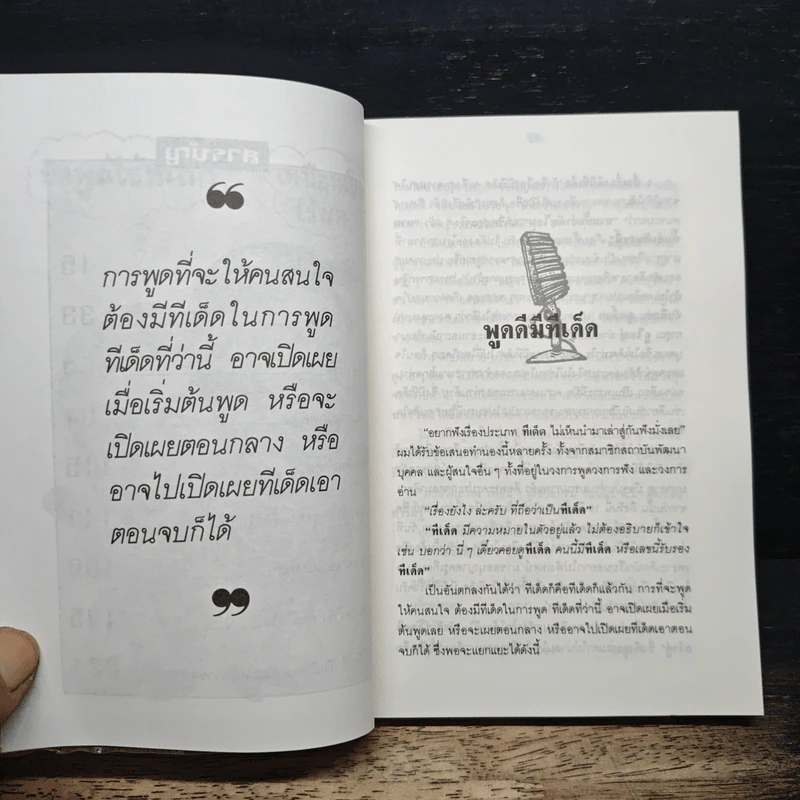 ❝
การพูดที่จะให้คนสนใจ
ต้องมีทีเด็ดในการพูด
ทีเด็ดที่ว่านี้ อาจเปิดเผย
เมื่อเริ่มต้นพูด หรือจะ
เปิดเผยตอนกลาง หรือ
อาจไปเปิดเผยทีเด็ดเอา
ตอนจบก็ได้
❞
พูดดีมีทีเด็ด
“อยากฟังเรื่องประเภท ทีเด็ด ไม่เห็นนำมาเล่าสู่กันฟังมั่งเลย”
ผมได้รับข้อเสนอทำนองนี้หลายครั้ง ทั้งจากสมาชิกสถาบันพัฒนา
บุคคล และผู้สนใจอื่น ๆ ทั้งที่อยู่ในวงการพูดวงการฟัง และวงการ
อ่าน
“เรื่องยังไง ล่ะครับ ที่ถือว่าเป็นทีเด็ด”
“ทีเด็ด มีความหมายในตัวอยู่แล้ว ไม่ต้องอธิบายก็เข้าใจ
เช่น บอกว่า นี่ ๆ เดี๋ยวคอยดูทีเด็ด คนนี้มีทีเด็ด หรือเลขนี้รับรอง
ทีเด็ด”
เป็นอันตกลงกันได้ว่า ทีเด็ดก็คือทีเด็ดก็แล้วกัน การที่จะพูด
ให้คนสนใจ ต้องมีทีเด็ดในการพูด ทีเด็ดที่ว่านี้ อาจเปิดเผยเมื่อเริ่ม
ต้นพูดเลย หรือจะเผยตอนกลาง หรืออาจไปเปิดเผยทีเด็ดเอาตอน
จบก็ได้ ซึ่งพอจะแยกแยะได้ดังนี้